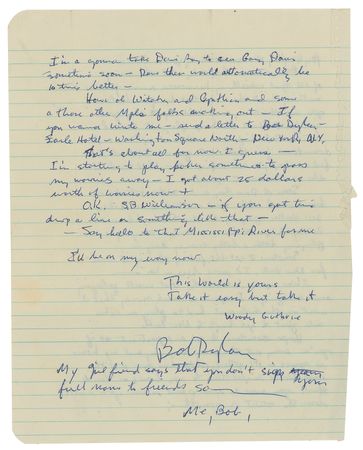 I'm a gonna take Dave Ray to see Gary Davis
sometime soon - Dave then would automatically be
10 times better -
How're Witcher and Cynthia and some
a those other Mpls folks making out - If
you wanna write me - send a letter to Bob Dylan -
Earle Hotel - Washington Square North - New York, N.Y.
That's about all for now I guess -
I'm starting to play poker sometimes to pass
my worries away - I got about 25 dollars
worth of worries now +
O.K. SB Williamson - if you get this
drop a line or something like that -
- Say hello to that Mississippi River for me
I'll be on my way now
This World is yours
Take it easy but take it
Woody Guthrie
Bob Dylan
My girl friend says that you don't sign your
full name to friends so
Me, Bob,